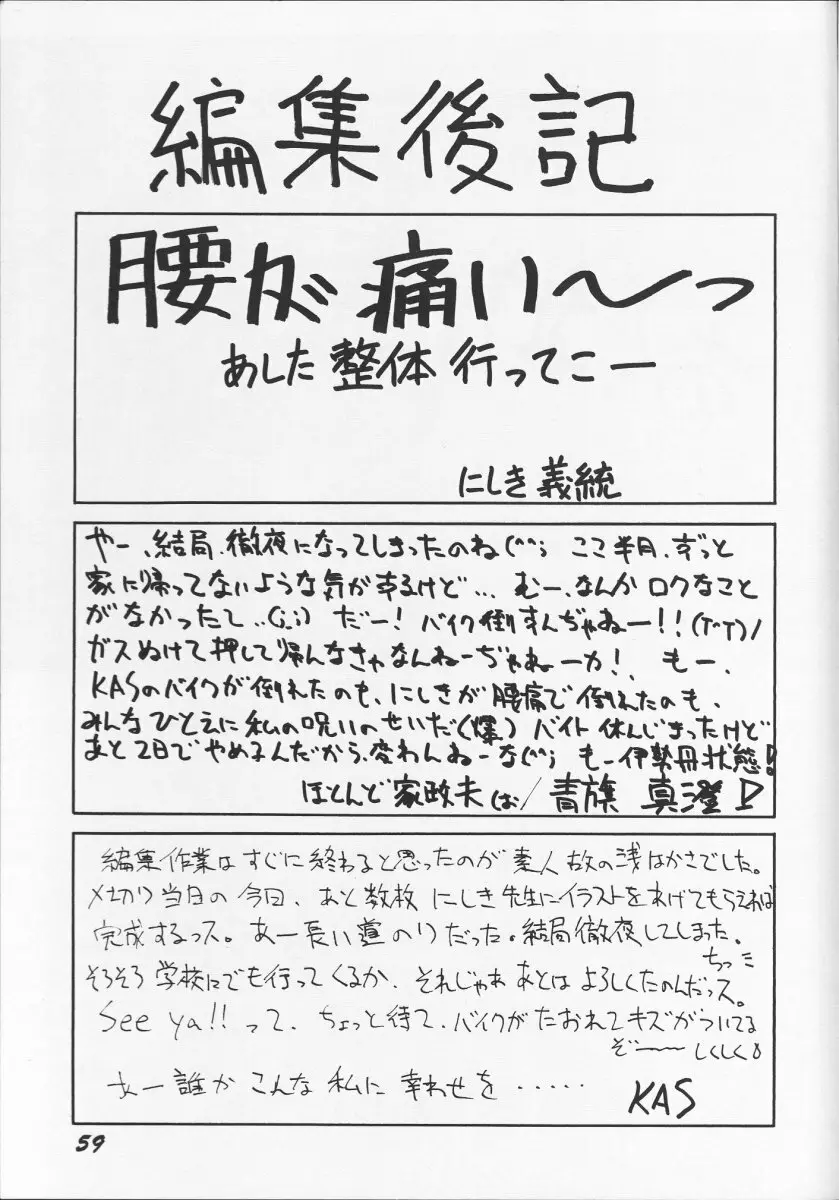 編集後記
腰が痛い〜っ
あした整体行ってこー
にしき義統
やー、結局、徹夜になってしまったのね(^^; ここ半月、ずっと
家に帰ってないような気がするけど… むー、なんかロクなこと
がなかったて..(;_;) だー! バイク倒すんぢゃねー!!(T^T)/
ガスぬけて押して帰んなきゃなんねーぢゃねーカ! もー、
KASのバイクが倒れたのも、にしきが腰痛で倒れたのも、
みんなひとえに私の呪いのせいだ(爆) バイト休んじまったけど
あと2日でやめるんだから、変わんねーな(^^; もー伊勢丹状態!
ほとんど家政夫(お)/青旗 真澄
編集作業はすぐに終わると思ったのが素人故の浅はかさでした。
〆切り当日の今日、あと数枚にしき先生にイラストをあげてもらえれば
完成するっス。あー長い道のりだった。結局徹夜してしまった。
ちっ
そろそろ学校にでも行ってくるか、それじゃああとはよろしくたのんだっス。
See ya!! って、ちょっと待て、バイクがたおれてキズがついてる
ぞ〜〜 しくしく
あー誰かこんな私に幸わせを・・・・・
KAS
59